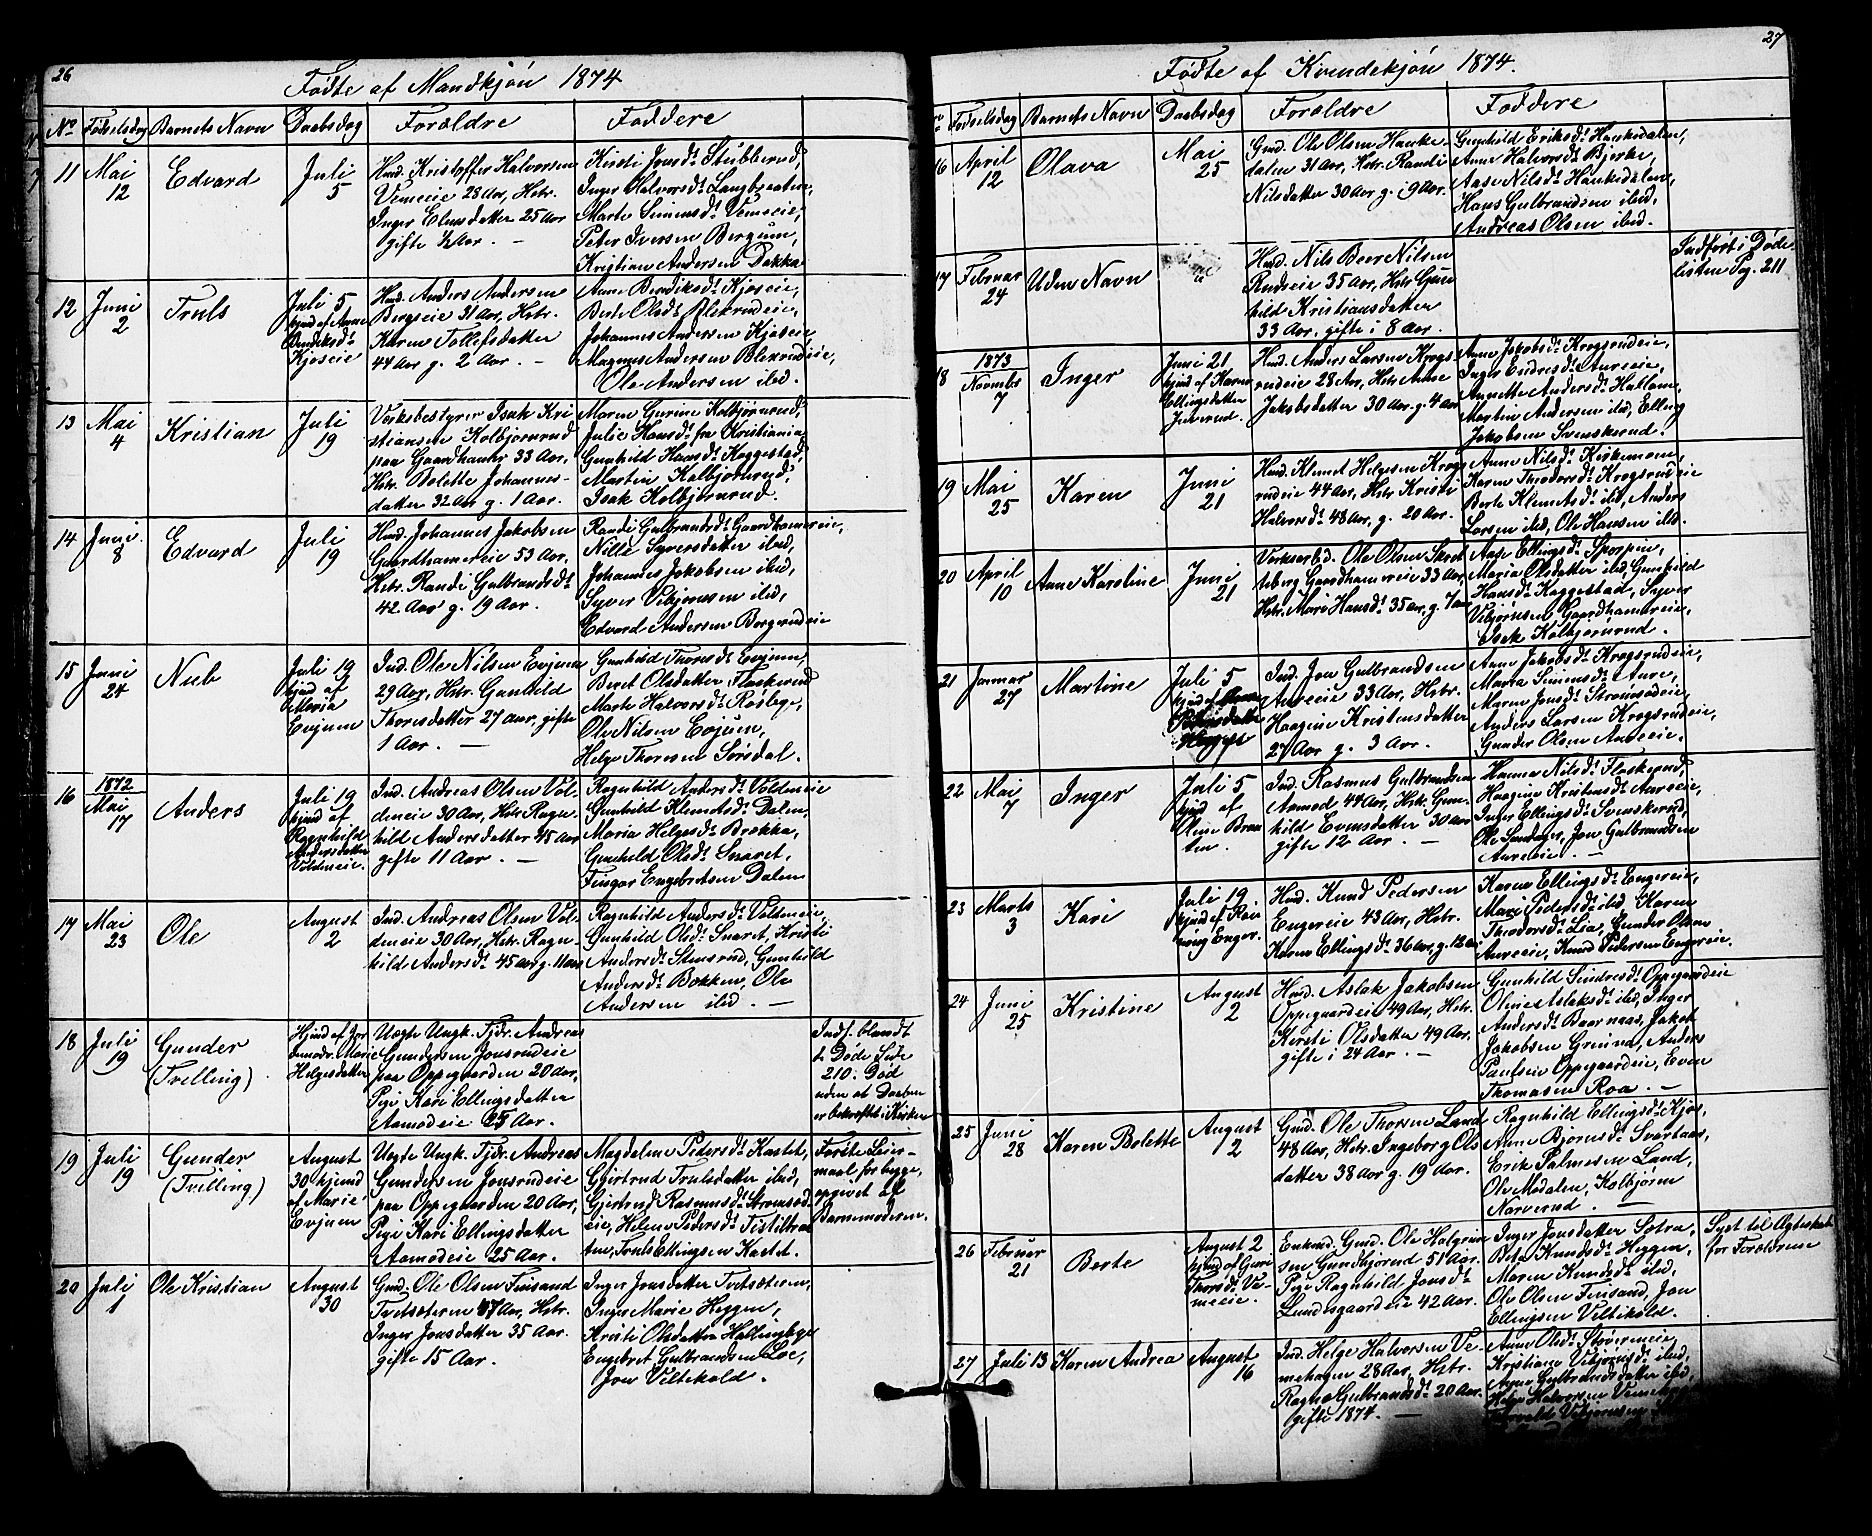 26
Fødte af Mandkjøn 1874
No Fødselsdag Barnets Navn Daabsdag Forældre Faddere
11 Mai 12 Edvard Juli 5
Hmd. Kristoffer Halvorsen
Vemeeie 28 Aar, Hstr.
Inger Elensdatter 25 Aar
gifte ½ Aar. —
Kirsti Jonsdr. Stubberud,
Inger Halvorsdr. Langbraaten,
Marte Simensdr. Vemeeie,
Peter Iversen Bergum,
Kristian Andersen Dakka
12 Juni 2 Truls
Juli 5
hjmd af Anne
Bendiksdr.
Kjøseie
Hmd. Anders Andersen
Bergseie 31 Aar, Hstr.
Karen Tollefsdatter
44 Aar g. 2 Aar. —
Anne Bendiksdr. Kjøseie,
Berte Olsdr. Blekrudeie,
Johannes Andersen Kjøseie,
Magnus Andersen Blekrudeie,
Ole Andersen ibid.
13 Mai 4 Kristian Juli 19
Verksbestyrer Isak Kri
stiansen Kolbjørnrud
paa Gaardhamar 33 Aar,
Hstr. Bolette Johannes-
datter 32 Aar g. 1 Aar.
Maren Gurine Kolbjørnrud,
Julie Hansdr. fra Kristiania,
Gunhild Hansdr. Kaggestad,
Martin Kolbjørnrud,
Isak Kolbjørnrud.
14 Juni 8 Edvard Juli 19
Hmd. Johannes Jakobsen
Gaardhamereie 53 Aar,
Hstr. Randi Gulbrandsdr.
42 Aar g. 19 Aar.
Randi Gulbrandsdr. Gaardhamereie,
Nille Syversdatter ibid,
Johannes Jakobsen ibid,
Syver Vibjørnsen ibid,
Edvard Andersen Borgerudeie
15 Juni 24 Nub
Juli 19
hjmd af
Maria
Evjuen
Ind. Ole Nilsen Evjuen
29 Aar, Hstr. Gunhild
Thoresdatter 27 aar, gifte
1 Aar. —
Gunhild Thoresdr. Evjuen,
Beret Olsdatter Flaskerud
Marte Halvorsdr. Røslege,
Ole Nilsen Evjuen,
Helge Thoresen Sørsdal.
16 1872 Mai 17 Anders
Juli 19
hjmd af
Ragnhild
Andersdatter
Voldeneie.
Ind. Andreas Olsen Vol-
deneie 30 Aar, Hstr. Ragn
hild Andersdatter 45 Aar
gifte 11 Aar. —
Ragnhild Andersdr. Voldeneie
Gunhild Klemetsdr. Dalen,
Maria Helgesdr. Brekka,
Gunhild Olsdr. Snaret,
Tingar Engebretsen Dalen
17 Mai 23 Ole August 2
Ind. Andreas Olsen Vol-
deneie 30 Aar, Hstr. Ragn-
hild Andersdr. 45 aar g. 11 aar
Ragnhild Andersdr. Voldeneie,
Gunhild Olsdr. Snaret, Kristi
Andersdr. Stensrud, Gunhild
Andersdr. Bakken, Ole
Andersen ibid. —
18 Juli 19 Gunder (Tvilling).
Hjmd af Jor
demodr. Marie
Helgesdatter
Uægte Ungk. Tjdr. Andreas
Gundersen Jonsrudeie
paa Oppegaarden 20 Aar,
Pige Kari Ellingsdatter
Aamodeie 25 Aar.
Indf. blandt
de Døde Side
210. Død
uden at Daaben
er bekræftet i Kirken
19 Juli 19 Gunder (Tvilling)
August
30 hjemd
af Marie
Evjuen
Uægte Ungk. Tjdr. Andreas
Gundersen Jonsrudeie
paa Oppegaarden 20 Aar,
Pige Kari Ellingsdatter
Aamodeie 25 Aar.
Magdalene Pedersdr. Kastet,
Gjertrud Trulsdatter ibid,
Gjertrud Rasmusdr. Strømsod-
eie, Helene Pedersdr. Tistilbraa
ten, Truls Ellingsen Kastet.
Første Leier-
maal for begge,
opgivet af
Barnemoderen.
20 Juli 1 Ole Kristian August 30
Gmd. Ole Olsen Finsand
Tvetsæteren 47 Aar, Hstr.
Inger Jonsdatter 35 Aar.
gifte 15 Aar.
Inger Jonsdatter Tvetsæteren,
Inger Marie Heggen,
Kristi Olsdatter Hallingbye
Engebret Gulbrandsen Loe,
Jon Veltekold.
27
Fødte af Kvindekjøn 1874.
No Fødselsdag Barnets Navn Daabsdag Forældre Faddere
16 April 12 Olava Mai 25
Gmd. Ole Olsen Hauke-
dalen 31 Aar, Hstr. Randi
Nilsdatter 30 Aar g. i 9 Aar.
Gunhild Eriksdr. Haukedalen,
Anne Halvorsdr. Bjerke,
Aase Nilsdr. Haukedalen,
Hans Gulbrandsen ibid,
Andreas Olsen ibid.
17 Februar 24 Uden Navn
Hmd. Nils Beer Nilsen
Rudseie 35 Aar, Hstr. Gun
hild Kristiansdatter
33 Aar, gifte i 8 Aar.
Indført i Døde
listen Pag. 211
18 1873 Novmbr 7 Inger
Juni 21
hjmd af Karen
Ellingsdatter
Juterud.
Hmd. Anders Larsen Krogs
rudeie 28 Aar, Hstr. Anne
Jakobsdatter 30 Aar g. 4 aar
Anne Jakobsdr. Krogsrudeie,
Inger Endresdr. Aureeie,
Annette Andersdr. Hallom,
Martin Andersen ibid, Elling
Jakobsen Svenskerud.
19 Mai 25 Karen Juni 21
Hmd. Klemet Helgesen Krogs
rudeie 44 Aar, Hstr. Kristi
Halvorsdr. 48 Aar, g. 20 Aar.
Anne Nilsdr. Kirkemoen,
Karen Theodorsdr. Krogsrudeie
Berte Klemetsdr. ibid, Anders
Larsen ibid, Ole Hansen ibid.
20 April 10 Anne Karoline Juni 21
Verksarbd. Ole Olsen Skret
teberg Gaardhamereie 33 Aar
Hstr. Mari Hansdr. 35 aar, g. 7 aar
Aase Ellingsdr. Sporpen,
Maria Olsdatter ibid, Gunhild
Hansdr. Kaggestad, Syver
Vibjørnsen Gaardhamereie,
Isak Kolbjørnrud.
21 Januar 27 Martine
Juli 5
hjmd af Anne
Pedersdatter
Heggen
Ind. Jon Gulbrandsen
Aureeie 33 Aar, Hstr.
Haagine Kristensdatter
27 Aar g. 3 Aar.
Anne Jakobsdr. Krogsrudeie,
Maria Simensdr. Aure,
Maren Jonsdr. Strømsodeie,
Anders Larsen Krogsrudeie,
Gunder Olsen Aureeie.
22 Mai 7 Inger
Juli 5
hjmd af
Oline Braa
ten.
Ind. Rasmus Gulbrandsen
Aamod 44 Aar, Hstr. Gun-
hild Evensdatter 30 Aar
gifte 12 Aar. —
Hanna Nilsdr. Flaskerud,
Haagine Kristensdr. Aureeie,
Inger Ellingsdr. Svenskerud,
Ole Sandaker, Jon Gulbrandsen
Aureeie. —
23 Marts 3 Kari
Juli 19
hjmd af Ran
veig Enger.
Hmd. Knud Pedersen
Engereie 43 Aar, Hstr.
Karen Ellingsdr. 36 aar, g. 12 aar
Karen Ellingsdr. Engereie,
Mari Pedersdr. ibid, Karen
Theodorsdr. Lia, Gunder Olsen
Aureeie, Knud Pedersen Engereie.
24 Juni 25 Kristine August 2
Hmd. Aslak Jakobsen
Oppegaardeie 49 Aar, Hstr.
Kirsti Olsdatter 49 Aar,
gifte i 24 Aar. —
Gunhild Sindresdr. Oppegaardeie
Oline Aslaksdr. ibid, Inger
Andersdr. Baarnaas, Jakob
Jakobsen Grønna, Anders
Paulsen Oppegaardeie, Even
Thomasen Roa. —
25 Juni 28 Karen Bolette August 2
Gmd. Ole Thorsen Land
48 Aar, Hstr. Ingeborg Ols
datter 38 Aar g. 19 Aar.
Ragnhild Ellingsdr. Kjøs,
Anne Bjørnsdr. Svartaas,
Erik Palmesen Land,
Ole Modalen, Kolbjørn
Narverud. —
26 Februar 21 Berte
August 2
hjmd af Guri
Thorsdr. Ve-
meeie.
Enkmd. Gmd. Ole Halgrim
sen Gundhjørud 51 Aar.
Pige Ragnhild Jonsdr.
Lundsgaardeie 42 Aar.
Inger Jonsdatter Sotra,
Berte Knudsdr. Heggen,
Maren Knudsdr. ibid,
Ole Olsen Finsand, Jon
Ellingsen Veltekold.
Lyst til Ægteskab
for Forældrene
27 Juli 13 Karen Andrea August 16
Ind. Helge Halvorsen Ve-
mehagen 28 Aar, Hstr.
Ragne Gulbrandsdr. 20 Aar.
gifte 1874. —
Anne Olsdr. Strøereneie,
Kristiane Vibjørnsdr. ibid,
Anne Gulbrandsdatter ibid,
Helge Halvorsen
Vibjørnsen